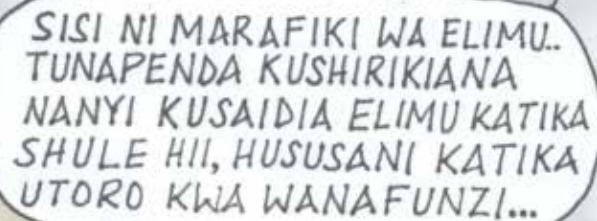 SISI NI MARAFIKI WA ELIMU..
TUNAPENDA KUSHIRIKIANA
NANYI KUSAIDIA ELIMU KATIKA
SHULE HII, HUSUSANI KATIKA
UTORO KWA WANAFUNZI...